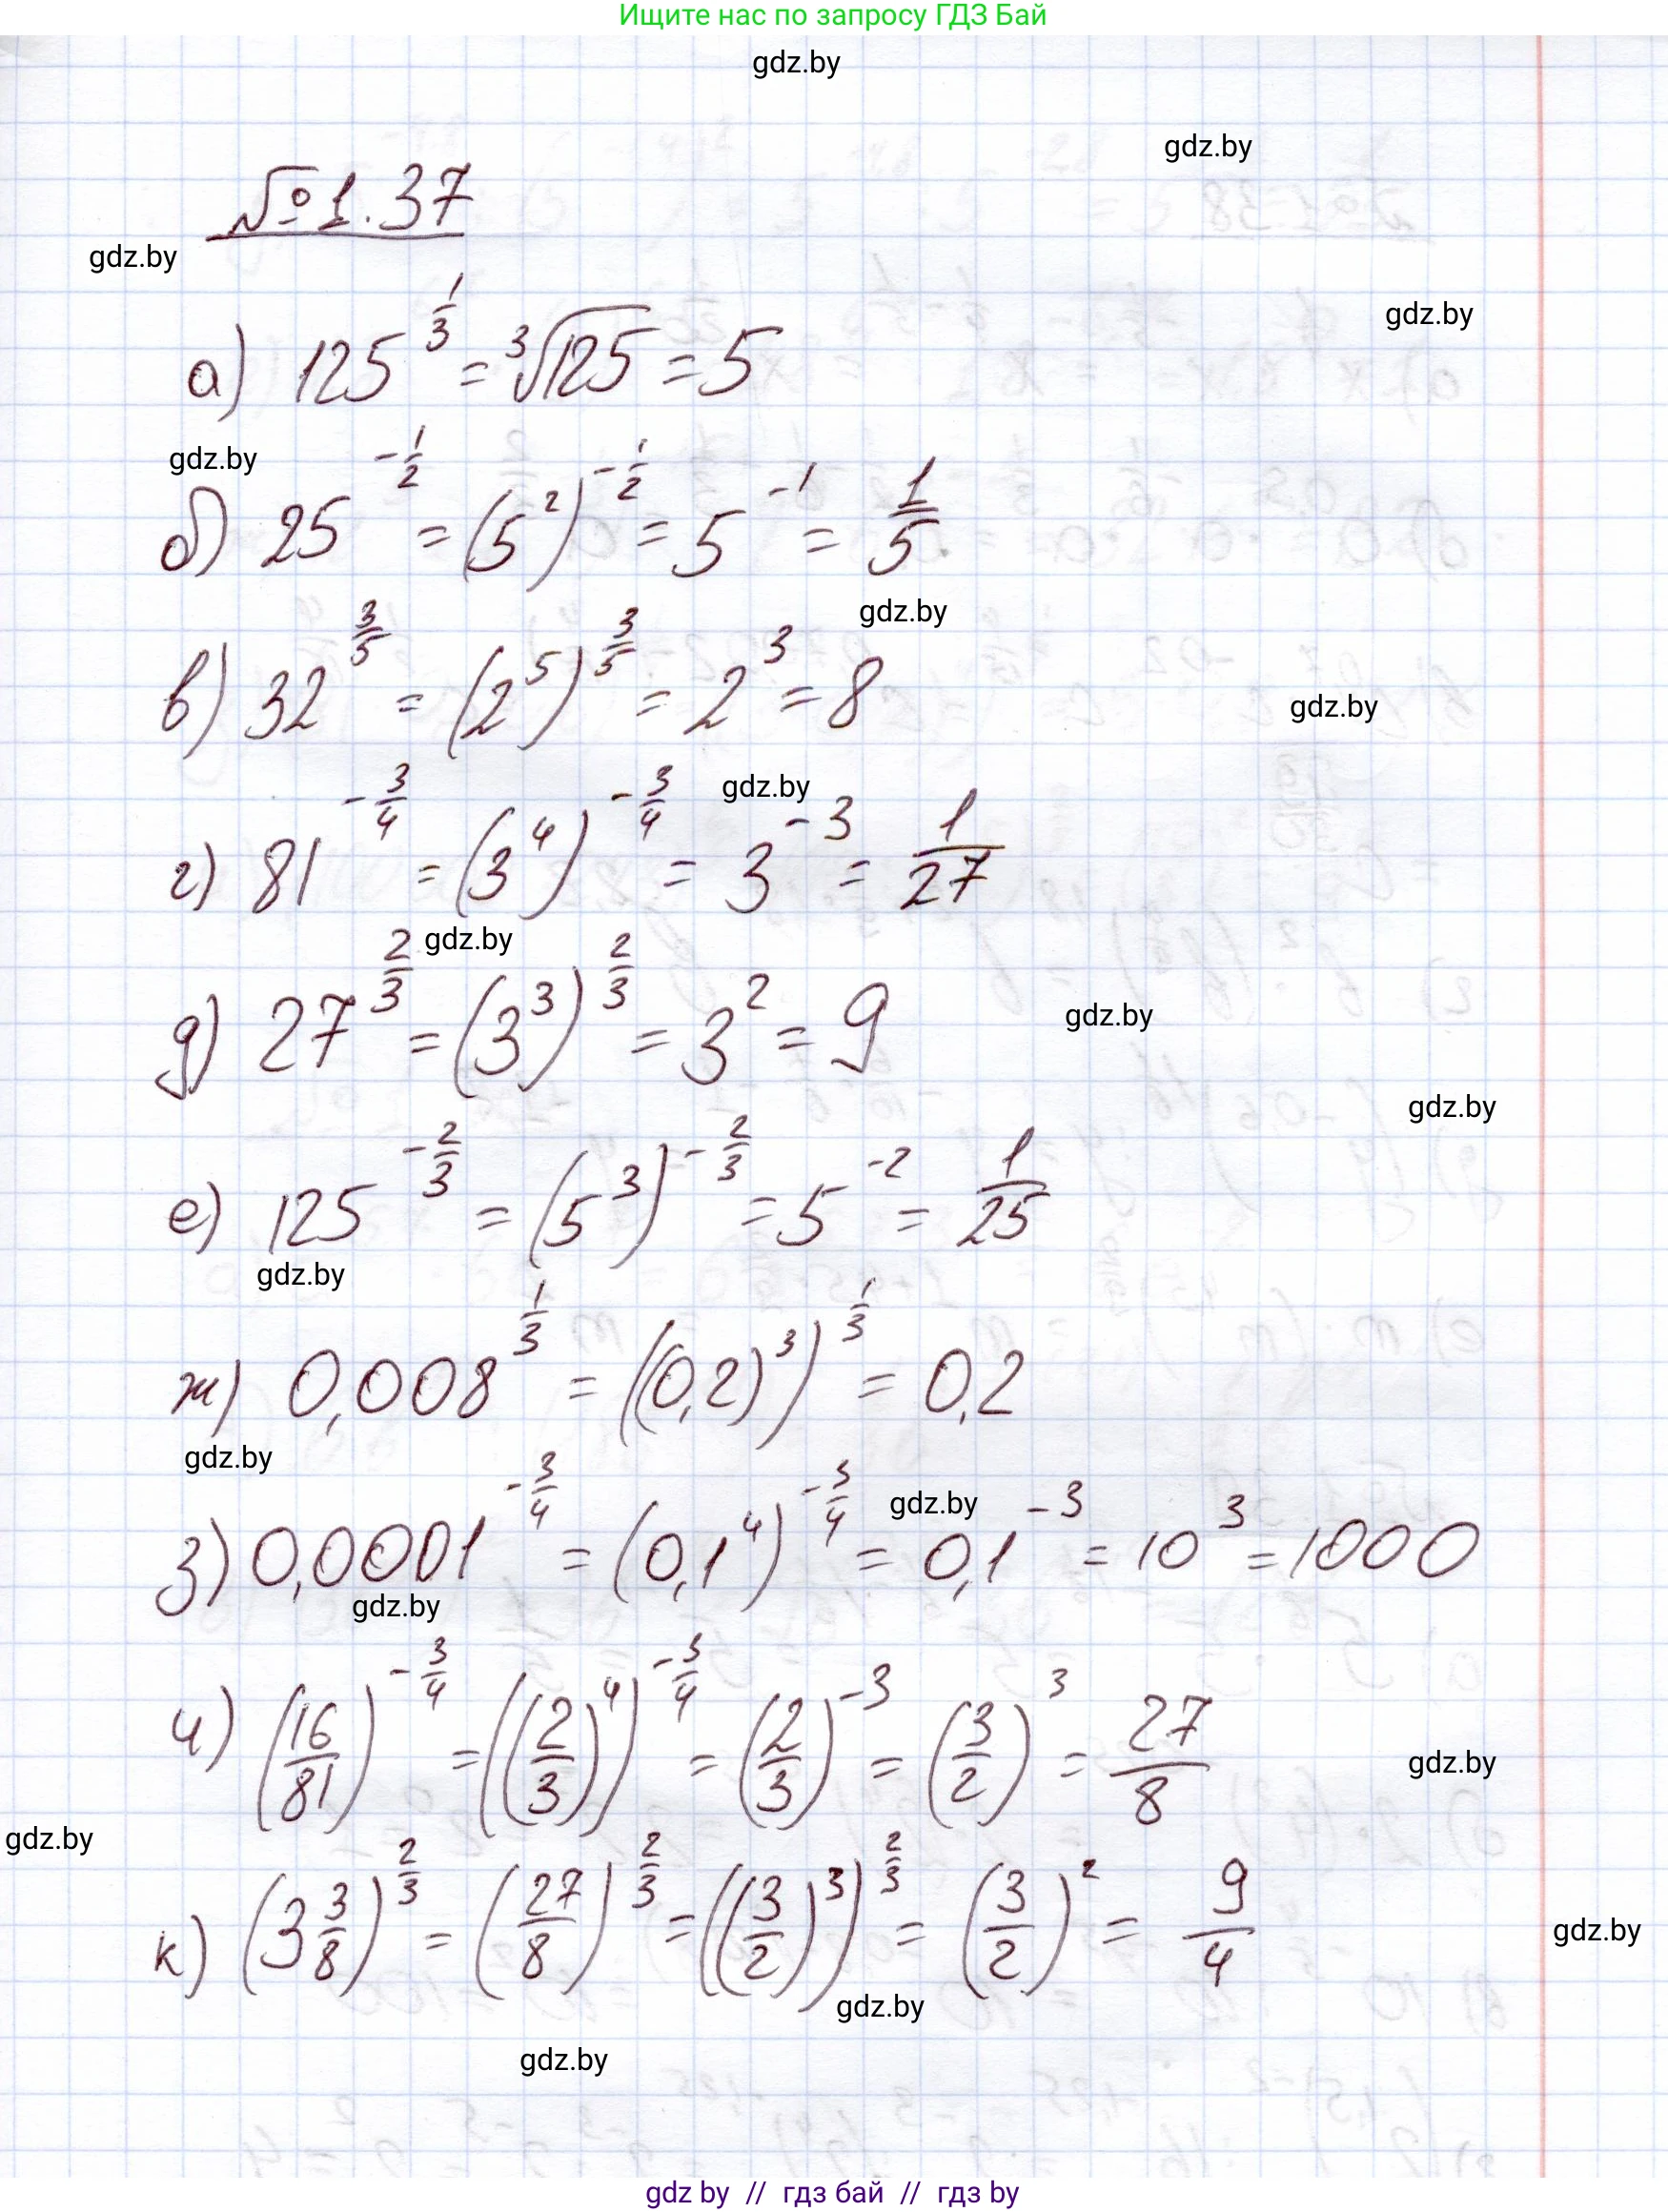 Ищите нас по запросу ГДЗ Бай
gdz.by
gdz.by
№1.37
gdz.by
gdz.by
а) 125^(1/3) = ∛125 = 5
gdz.by
б) 25^(-1/2) = (5^2)^(-1/2) = 5^(-1) = 1/5
gdz.by
в) 32^(3/5) = (2^5)^(3/5) = 2^3 = 8
gdz.by
gdz.by
г) 81^(-3/4) = (3^4)^(-3/4) = 3^(-3) = 1/27
gdz.by
д) 27^(2/3) = (3^3)^(2/3) = 3^2 = 9
gdz.by
gdz.by
е) 125^(-2/3) = (5^3)^(-2/3) = 5^(-2) = 1/25
gdz.by
ж) 0,008^(1/3) = ((0,2)^3)^(1/3) = 0,2
gdz.by
gdz.by
з) 0,0001^(-3/4) = (0,1^4)^(-3/4) = 0,1^(-3) = 10^3 = 1000
gdz.by
и) (16/81)^(-3/4) = ((2/3)^4)^(-3/4) = (2/3)^(-3) = (3/2)^3 = 27/8
gdz.by
gdz.by
к) (3 3/8)^(2/3) = (27/8)^(2/3) = ((3/2)^3)^(2/3) = (3/2)^2 = 9/4
gdz.by
gdz.by
gdz.by
gdz by // гдз бай // гдз by